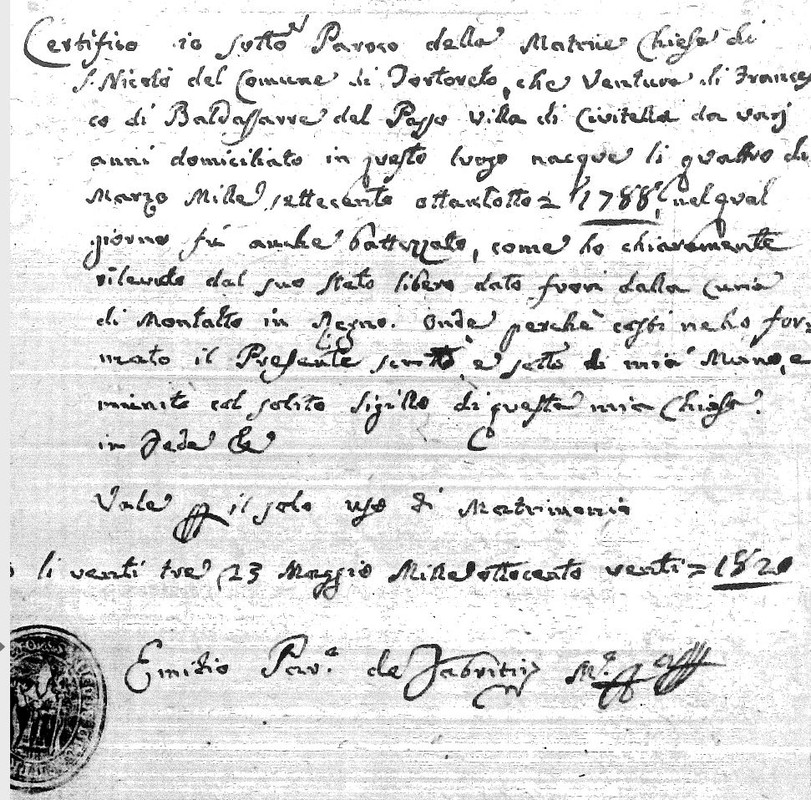 Certifico io sotto Paroco della Matrice Chiesa di
S. Nicolò del Comune di Tortoreto, che Ventura di Frances
co di Baldassarre del Passo villa di Civitella da varj
anni domiciliato in questo luogo nacque li quattro di
Marzo Mille settecento ottantotto = 1788, nel qual
giorno fù anche battezzato, come ho chiaramente
rilevato dal suo stato libero dato fuori dalla Curia
di Montalto in Regno. Onde perchè costi ne ho for
mato il Presente scritto, e sotto di mia Mano, e
munito col solito sigillo di questa mia Chiesa.
in fede &
Vale il solo uso di Matrimonio
li venti tre 23 Maggio Mille ottocento venti = 1820
Emidio Par.º de Fabritiis